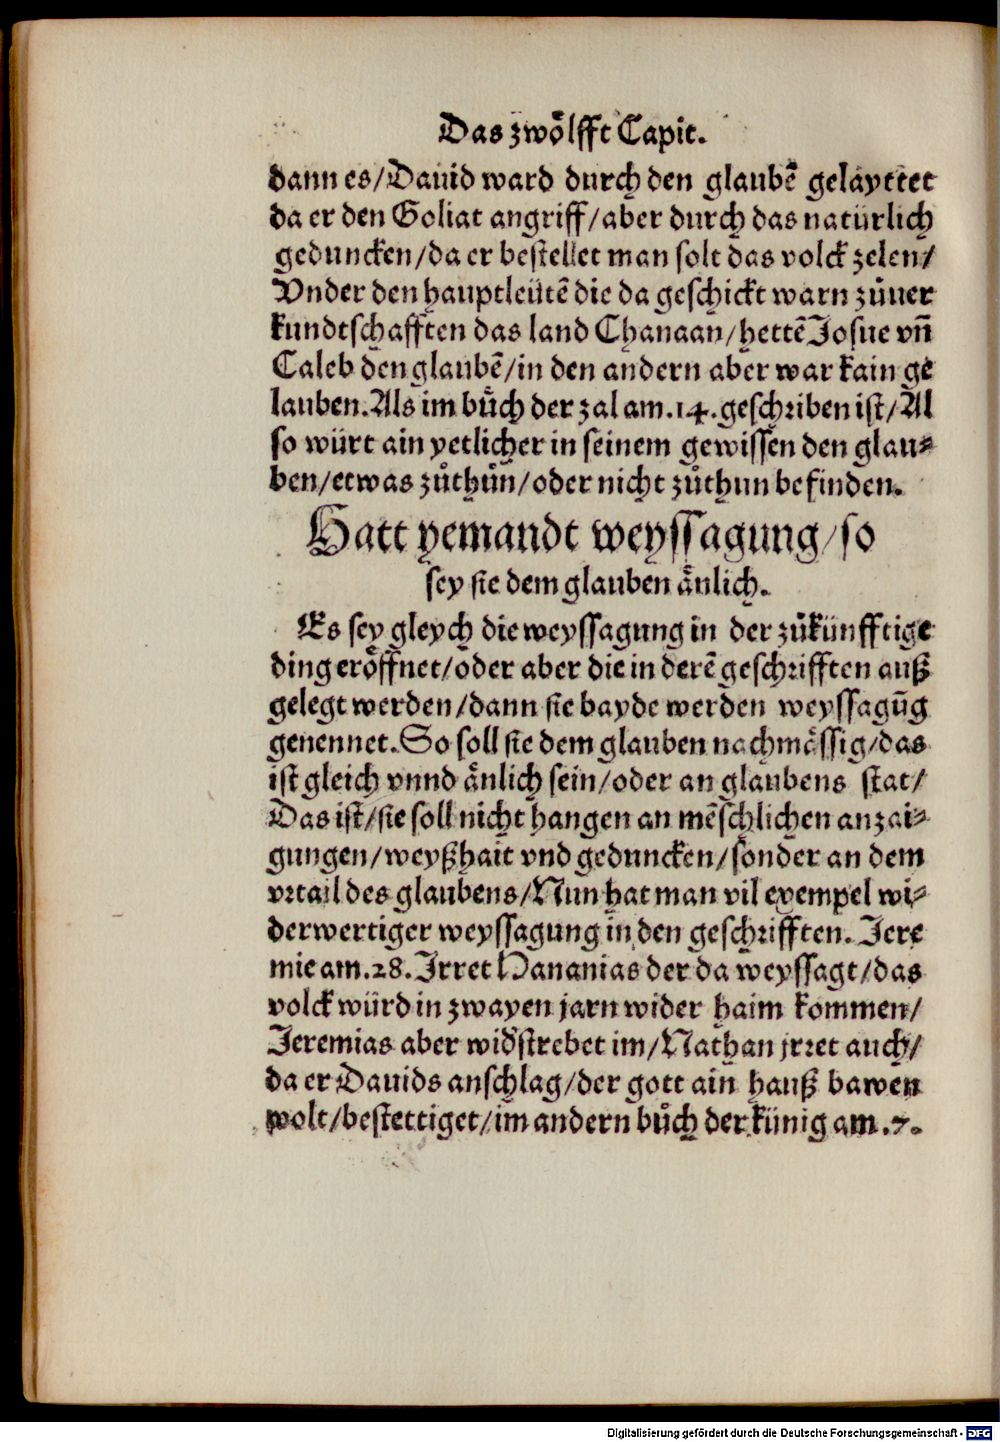 Das zwoͤlfft Capit.
dann es/Dauid ward durch den glaubẽ gelayttet
da er den Goliat angriff/aber durch das natürlich
geduncken/da er bestellet man solt das volck zelen/
Vnder den hauptleütẽ die da geschickt warn zuͦuer
kundtschafften das land Chanaan/hettẽ Josue vñ
Caleb den glaubẽ/in den andern aber war kain ge
lauben.Als im buͦch der zal am.14.geschriben ist/Al
so würt ain yetlicher in seinem gewissen den glau⸗
ben/etwas zuͦthuͦn/oder nicht zuͦthun befinden.
Hatt yemandt weyssagung/so
sey sie dem glauben aͤnlich.
Es sey gleych die weyssagung in der zuͦkünfftige
ding eroͤffnet/oder aber die in derẽ geschrifften auß
gelegt werden/dann sie bayde werden weyssagũg
genennet.So soll sie dem glauben nachmaͤssig/das
ist gleich vnnd aͤnlich sein/oder an glaubens stat/
Das ist/sie soll nicht hangen an mẽschlichen anzai⸗
gungen/weyßhait vnd geduncken/sonder an dem
vrtail des glaubens/Nun hat man vil exempel wi⸗
derwertiger weyssagung in den geschrifften. Jere
mie am.28.Jrret Hananias der da weyssagt/das
volck würd in zwayen jarn wider haim kommen/
Jeremias aber wid'strebet im/Nathan jrret auch/
da er Dauids anschlag/der gott ain hauß bawen
wolt/bestettiget/im andern buͦch der künig am.7.
Digitalisierung gefördert durch die Deutsche Forschungsgemeinschaft - DFG